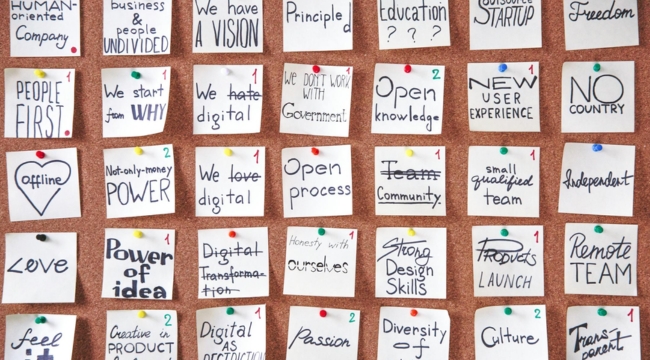 HUMAN-
oriented
Company.
business
&
people
UNDIVIDED
We have
A VISION
Principled
Education
? ? ?
OUTSOURCE
STARTUP
Freedom
1
PEOPLE
FIRST.
1
We start
from WHY
1
We hate
digital
1
We DON'T WORK
WITH
Government
2
Open
knowledge
1
NEW
USER
EXPERIENCE
NO
COUNTRY
Offline
2
Not-only-money
POWER
1
We love
digital
Open
process
1
Team
Community.
1
small
qualified
team
Independent
Love
1
Power
of
idea
1
Digital
Transforma-
tion
1
Honesty with
ourselves
Strong
Design
Skills
1
Products
LAUNCH
Remote
TEAM
feel
it
2
Creative in
PRODUCT
1
Digital
AS
2
Passion
2
Diversity
of
2
Culture
1
Trans-
parent